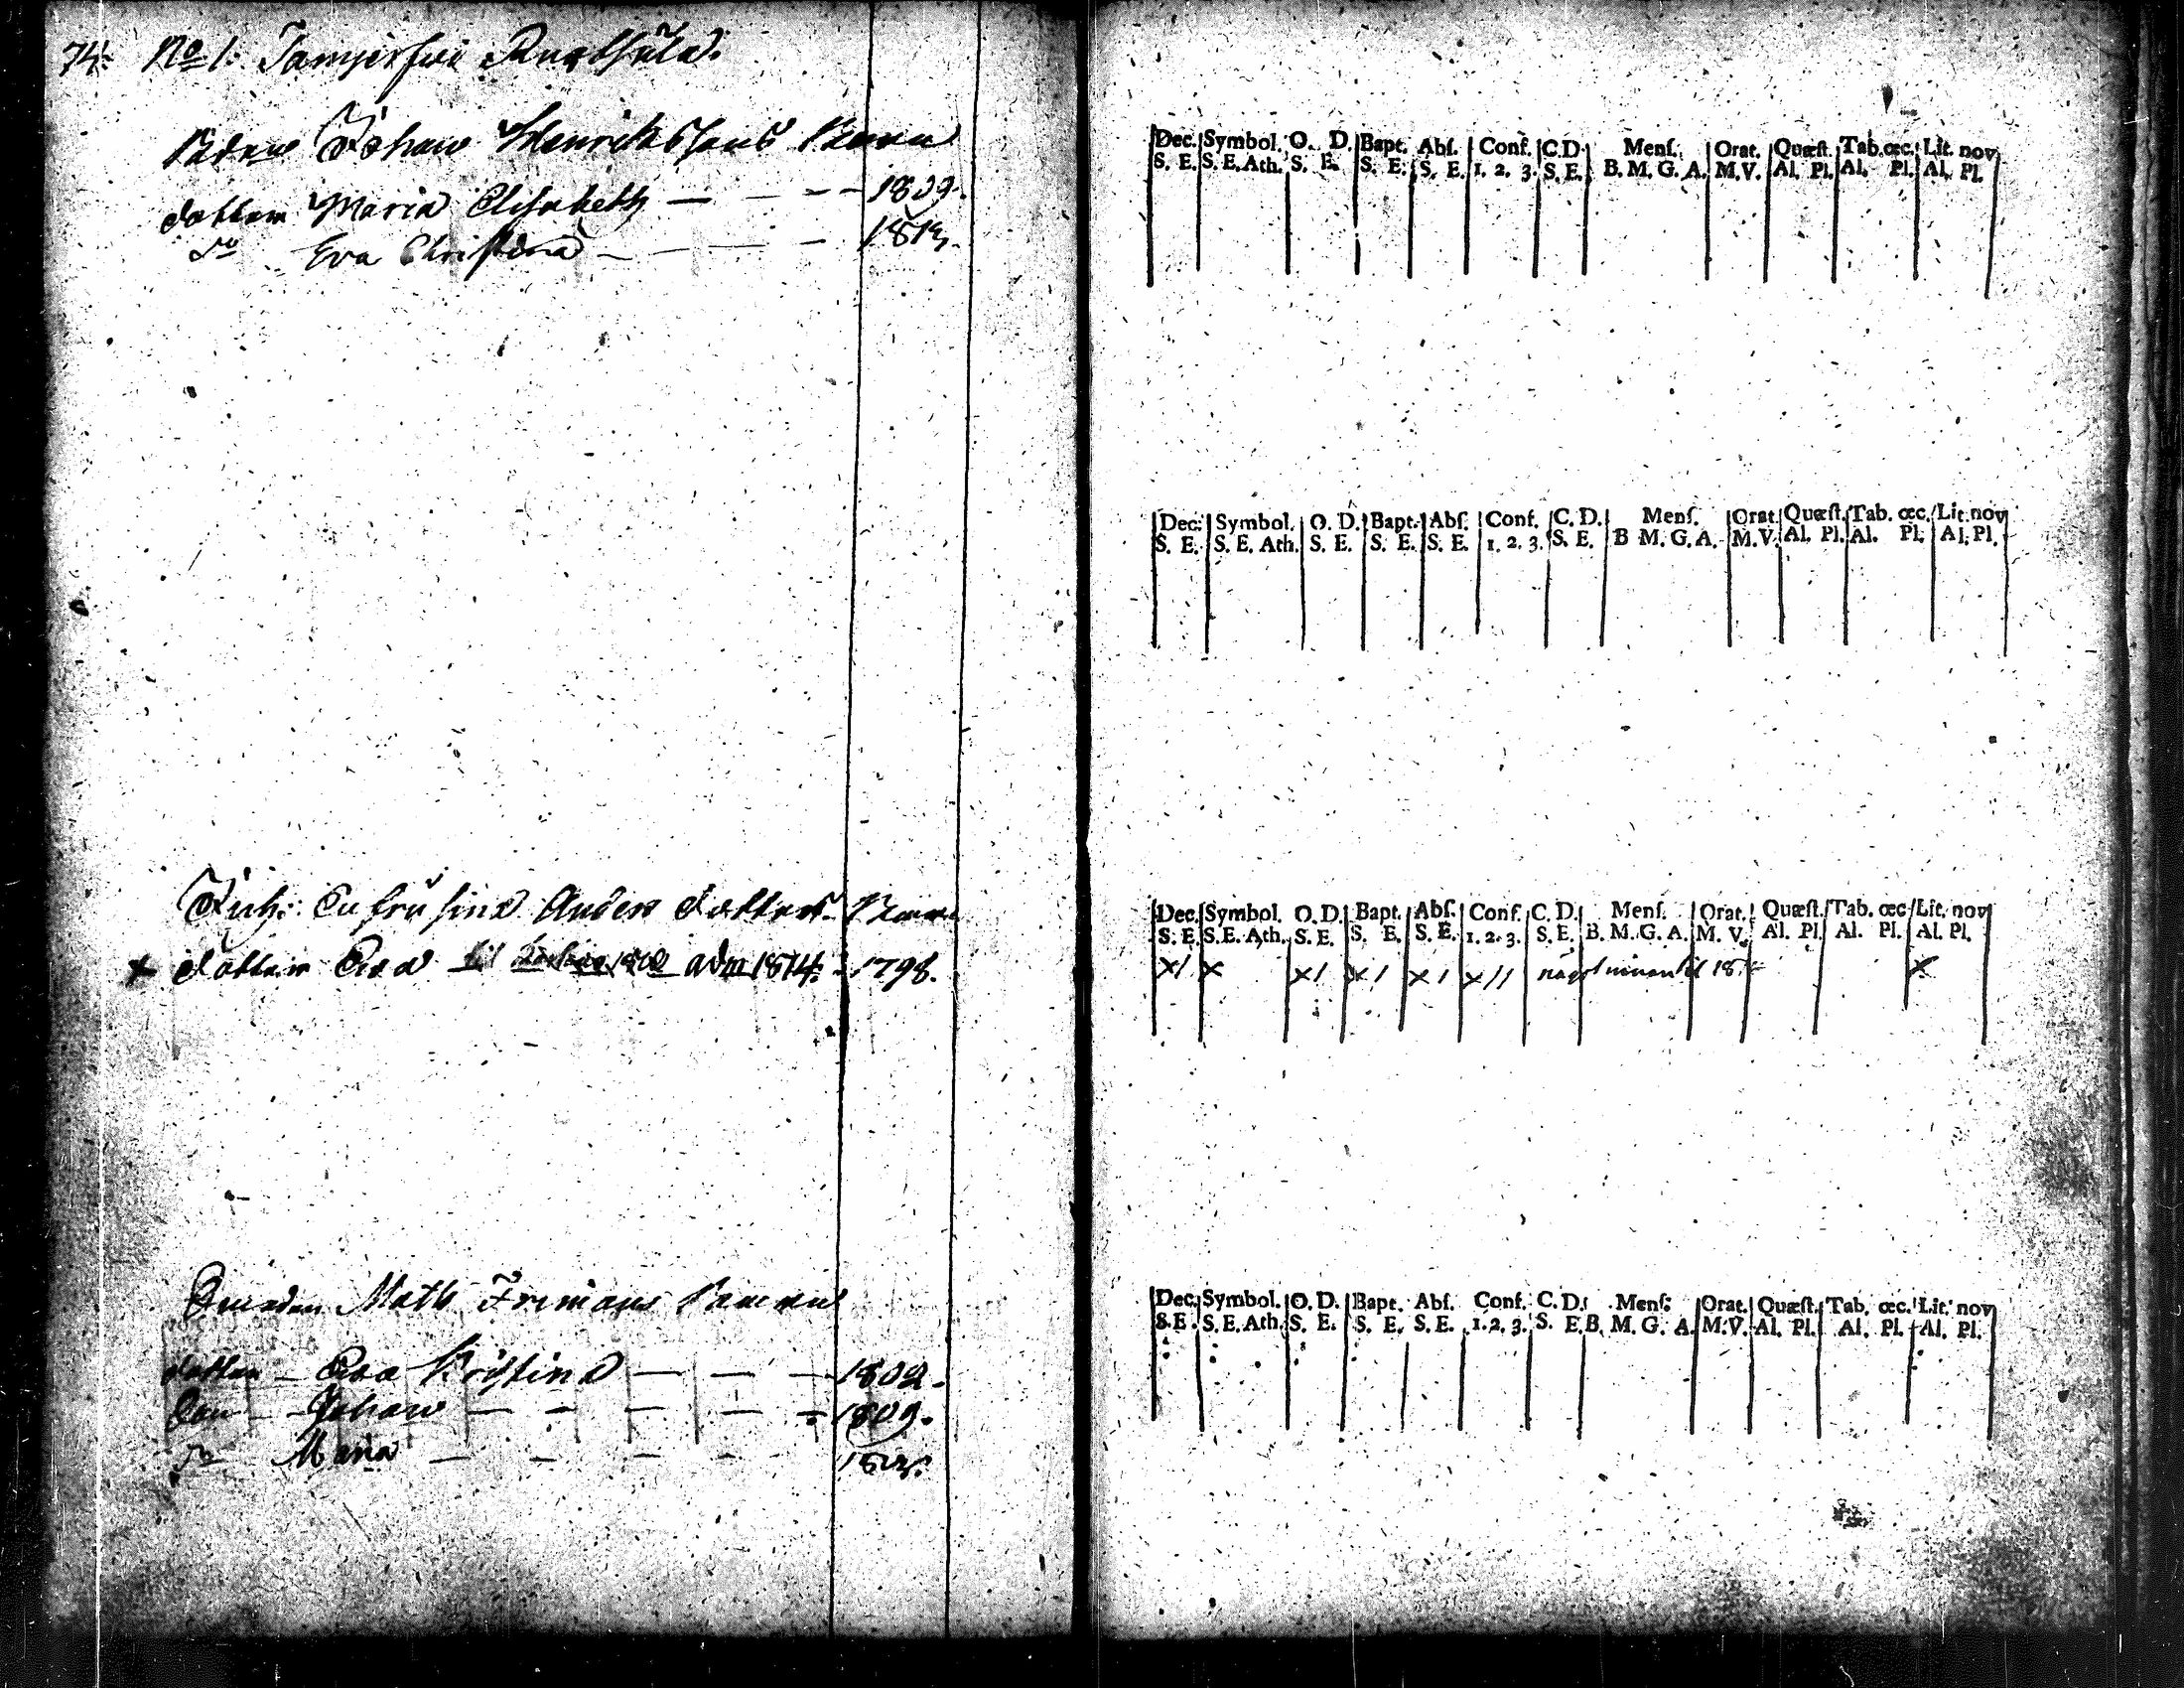 74. No 1. Tamjerfwi Rusthåll.
Johan Henrikssons Barn
dotter Maria Elisabeth — — — 1809.
do Eva Christina — — — 1813.
Dec. Symbol. O. D. Bapt. Abs. Conf. C.D. Mens. Orat. Quæst. Tab. œc. Lit. nov
S. E. S. E. Ath. S. E. S. E. S. E. 1. 2. 3. S. E. B. M. G. A. M. V. Al. Pl. Al. Pl. Al. Pl.
Dec. Symbol. O. D. Bapt. Abs. Conf. C. D. Mens. Orat. Quæst. Tab. œc. Lit. nov
S. E. S. E. Ath. S. E. S. E. S. E. 1. 2. 3. S. E. B M. G. A. M. V. Al. Pl. Al. Pl. Al. Pl.
Eufrusina Anders dotters Barn
x dotter Eva adm 1814. 1798.
Dec. Symbol. O. D. Bapt. Abs. Conf. C. D. Mens. Orat. Quæst. Tab. œc. Lit. nov
S. E. S. E. Ath. S. E. S. E. S. E. 1. 2. 3. S. E. B. M. G. A. M. V. Al. Pl. Al. Pl. Al. Pl.
x/ x x/ x/ x/ x// x
Math Frimans Barn
dotter — Eva Kristina — — — 1802.
Son — Johan — — — — — 1809.
do Maria — — — — —
Dec. Symbol. O. D. Bapt. Abs. Conf. C. D. Mens. Orat. Quæst. Tab. œc. Lit. nov
S. E. S. E. Ath. S. E. S. E. S. E. 1. 2. 3. S. E. B. M. G. A. M. V. Al. Pl. Al. Pl. Al. Pl.